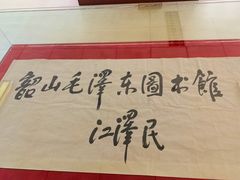 韶山毛澤东圖书館
江澤民